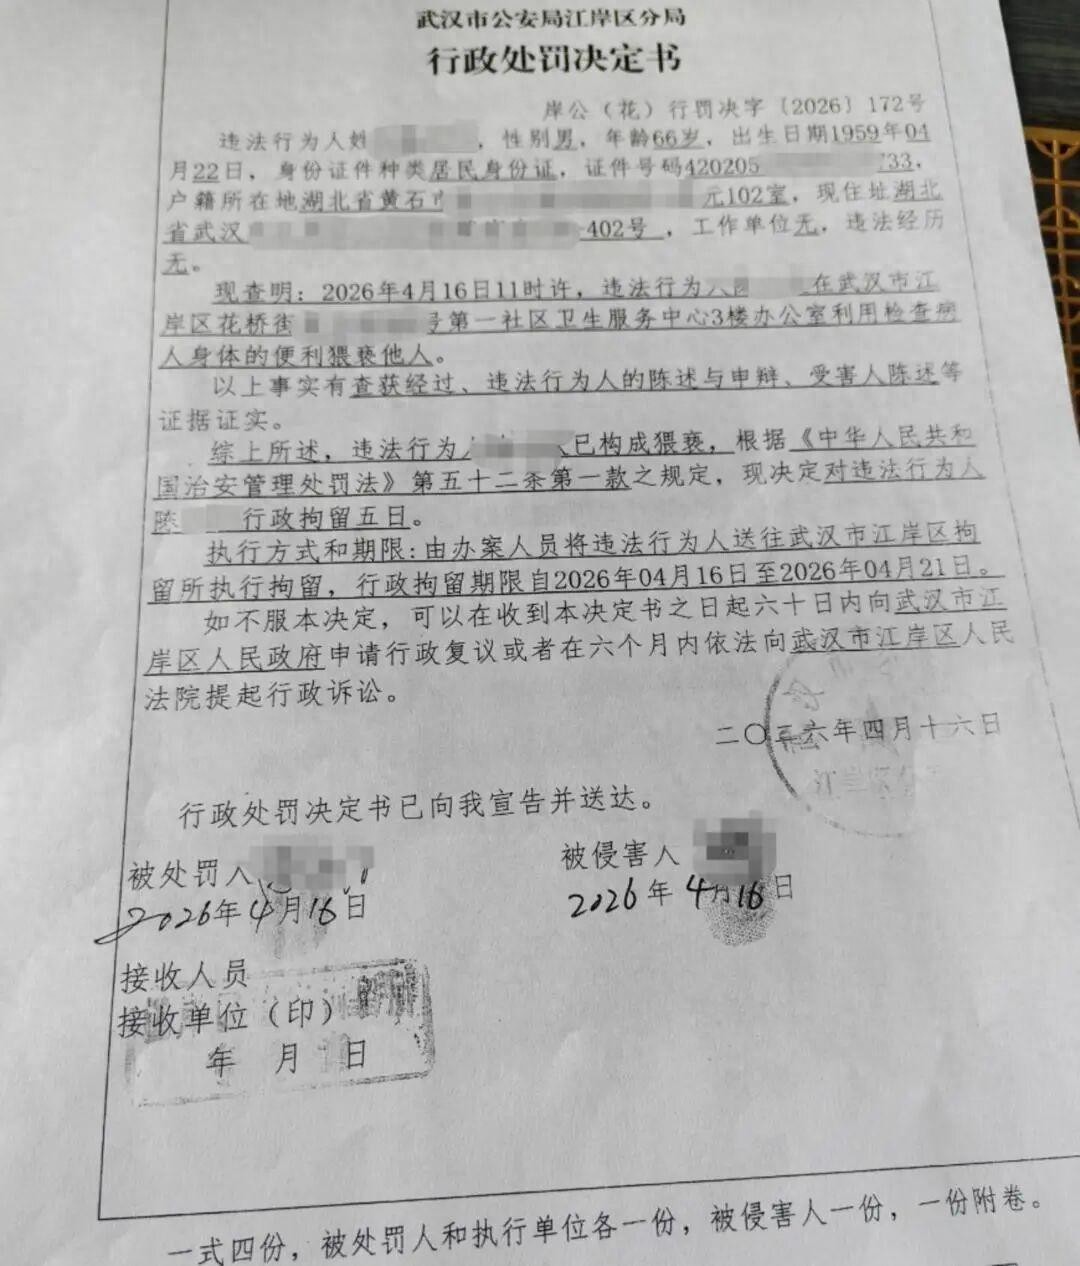 武汉市公安局江岸区分局
行政处罚决定书
岸公（花）行罚决字〔2026〕172号
违法行为人姓，性别男，年龄66岁，出生日期1959年04
月22日，身份证件种类居民身份证，证件号码420205 733，
户籍所在地湖北省黄石 元102室，现住址湖北
省武汉 402号，工作单位无，违法经历
无。
现查明：2026年4月16日11时许，违法行为人 在武汉市江
岸区花桥街 号第一社区卫生服务中心3楼办公室利用检查病
人身体的便利猥亵他人。
以上事实有查获经过、违法行为人的陈述与申辩、受害人陈述等
证据证实。
综上所述，违法行为人 已构成猥亵，根据《中华人民共和
国治安管理处罚法》第五十二条第一款之规定，现决定对违法行为人
陈 行政拘留五日。
执行方式和期限：由办案人员将违法行为人送往武汉市江岸区拘
留所执行拘留，行政拘留期限自2026年04月16日至2026年04月21日。
如不服本决定，可以在收到本决定书之日起六十日内向武汉市江
岸区人民政府申请行政复议或者在六个月内依法向武汉市江岸区人民
法院提起行政诉讼。
二〇二六年四月十六日
行政处罚决定书已向我宣告并送达。
被处罚人
2026年4月16日
被侵害人
2026年4月16日
接收人员
接收单位（印）
年 月 日
一式四份，被处罚人和执行单位各一份，被侵害人一份，一份附卷。